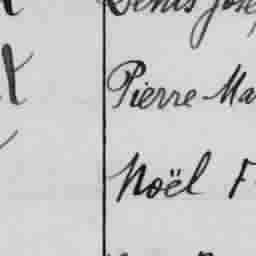 Denis Jose
Pierre Ma
Noël F